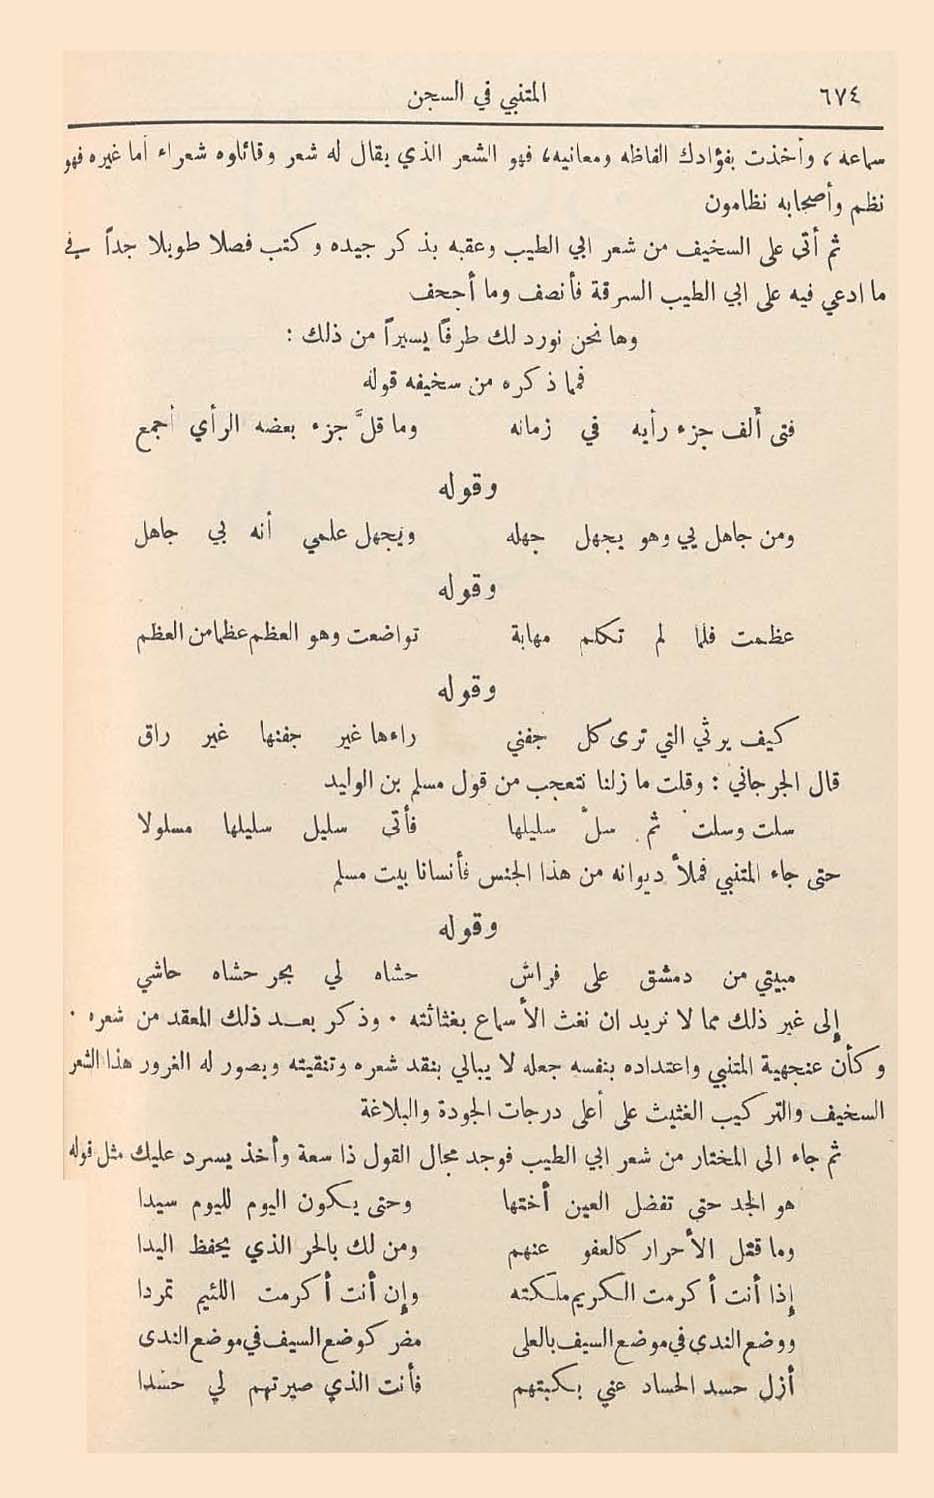 ٦٧٤ المتنبي في السجن
سماعه ، وأخذت بفؤادك الفاظه ومعانيه، فهو الشعر الذي يقال له شعر وقائلوه شعراء أما غيره فهو
نظم وأصحابه نظامون
ثم أتى على السخيف من شعر ابي الطيب وعقبه بذكر جيده وكتب فصلا طويلا جداً في
ما ادعي فيه على ابي الطيب السرقة فأنصف وما أجحف
وها نحن نورد لك طرفاً يسيراً من ذلك :
فمما ذكره من سخيفه قوله
فتى ألف جزء رأيه في زمانه وما قلَّ جزء بعضه الرأي أجمع
وقوله
ومن جاهل بي وهو يجهل جهله ويجهل علمي أنه بي جاهل
وقوله
عظمت فلما لم تكلم مهابة تواضعت وهو العظم عظما من العظم
وقوله
كيف يرثي التي ترى كل جفني راءها غير جفنها غير راق
قال الجرجاني : وقلت ما زلنا نتعجب من قول مسلم بن الوليد
سلت وسلت ثم سل سليلها فأتى سليل سليلها مسلولا
حتى جاء المتنبي فملأ ديوانه من هذا الجنس فأنسانا بيت مسلم
وقوله
مبيتي من دمشق على فراش حشاه لي بحر حشاه حاشي
إلى غير ذلك مما لا نريد ان نغث الأسماع بغثاثته . وذكر بعـد ذلك المعقد من شعره .
وكأن عنجهية المتنبي واعتداده بنفسه جعله لا يبالي بنقد شعره وتنقيته ويصور له الغرور هذا الشعر
السخيف والتركيب الغثيث على أعلى درجات الجودة والبلاغة
ثم جاء الى المختار من شعر ابي الطيب فوجد مجال القول ذا سعة وأخذ يسرد عليك مثل قوله
هو الجد حتى تفضل العين أختها وحتى يكون اليوم لليوم سيدا
وما قتل الأحرار كالعفو عنهم ومن لك بالحر الذي يحفظ اليدا
إذا أنت أكرمت الكريم ملكته وإن أنت أكرمت اللئيم تمردا
ووضع الندى في موضع السيف بالعلى مضر كوضع السيف في موضع الندى
أزل حسد الحساد عني بكبتهم فأنت الذي صيرتهم لي حسدا